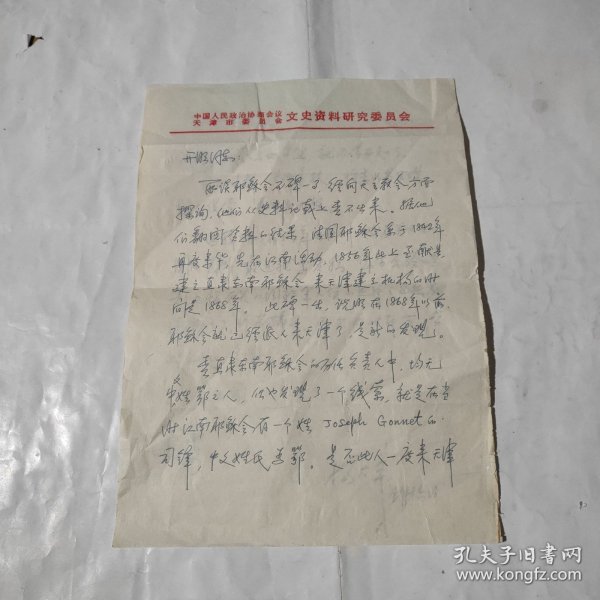 中国人民政治协商会议
天津市委员会
文史资料研究委员会
同志:
耶稣会石碑一事 经向天主教会方面
探询,他们从史料记载上查不出来。据他
们翻阅资料的结果,法国耶稣会系于1842年
再度来华,先在江南活动,1856年北上至献县
建立直隶东南耶稣会 来天津建立机构的时
间是1868年。此碑一出,说明在1868年以前
耶稣会就已经派人来天津了,是新的发现。
查直隶东南耶稣会的历任负责人中,均无
中文姓鄂之人,但也发现了一个线索,就是在当
时江南耶稣会有一个姓 Joseph Gonnet的
司铎,中文姓氏为鄂。是否此人一度来天津
孔夫子旧书网
www.kongfz.com